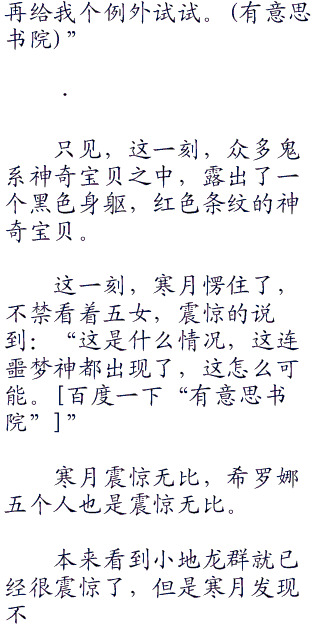 再给我个例外试试。(有意思
书院)”
.
只见，这一刻，众多鬼
系神奇宝贝之中，露出了一
个黑色身躯，红色条纹的神
奇宝贝。
这一刻，寒月愣住了，
不禁看着五女，震惊的说
到：“这是什么情况，这连
噩梦神都出现了，这怎么可
能。[百度一下“有意思书
院”]”
寒月震惊无比，希罗娜
五个人也是震惊无比。
本来看到小地龙群就已
经很震惊了，但是寒月发现
不